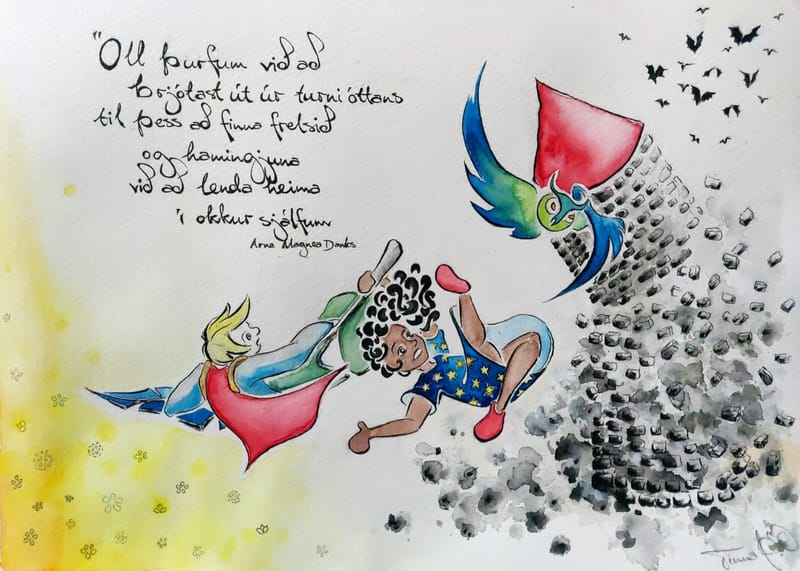 "Öll þurfum við að
brjótast út úr turni óttans
til þess að finna frelsið
og hamingjuna
við að lenda heima
í okkur sjálfum
Arna Magnea Danks